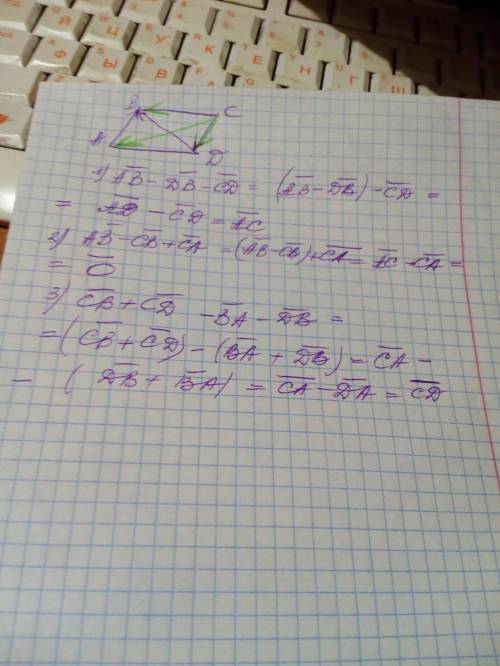 Й Ц У К Е Н
Ф Ы В А П
B
C
A
D
1) A̅B̅ - D̅B̅ - C̅D̅ = (A̅B̅ - D̅B̅) - C̅D̅ =
= A̅D̅ - C̅D̅ = A̅C̅
2) A̅B̅ - C̅B̅ + C̅A̅ = (A̅B̅ - C̅B̅) + C̅A̅ = A̅C̅ - C̅A̅ =
= O̅
3) C̅B̅ + C̅D̅ - B̅A̅ - D̅B̅ =
= (C̅B̅ + C̅D̅) - (B̅A̅ + D̅B̅) = C̅A̅ -
- (D̅B̅ + B̅A̅) = C̅A̅ - D̅A̅ = C̅D̅